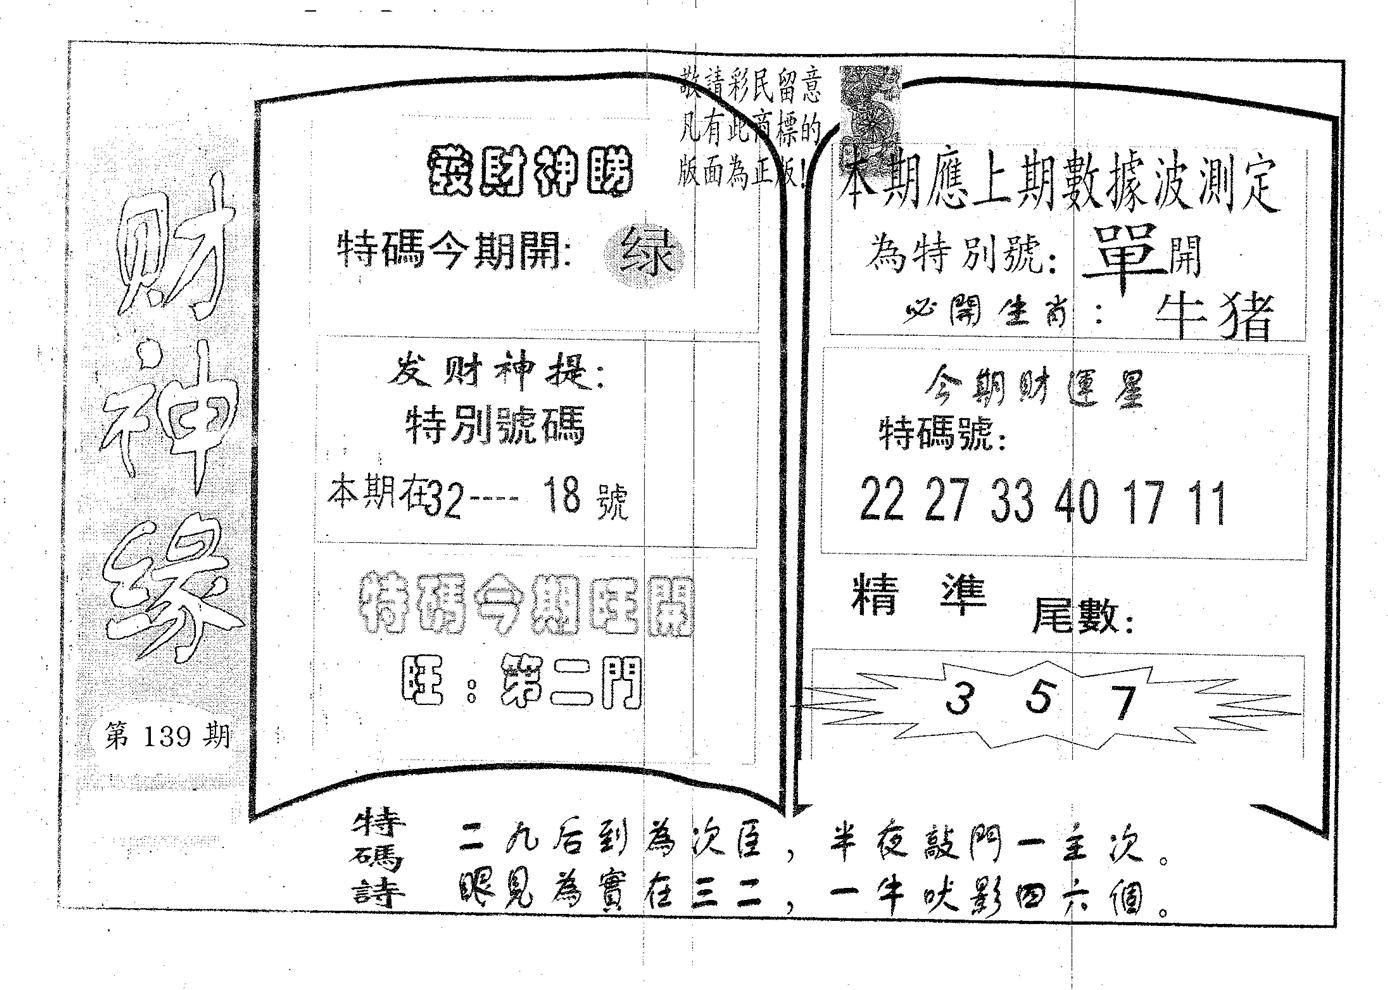 财神缘
第 139 期
敬請彩民留意
凡有此商標的
版面為正版!
發財神睇
特碼今期開: 绿
发财神提:
特別號碼
本期在32---- 18 號
特碼今期旺開
旺: 第二門
本期應上期數據波測定
為特別號: 單開
必開生肖: 牛猪
今期財運星
特碼號:
22 27 33 40 17 11
精 準 尾數:
3 5 7
特碼詩
二九后到為次臣, 半夜敲門一主次。
眼見為實在三二, 一牛吠影四六個。